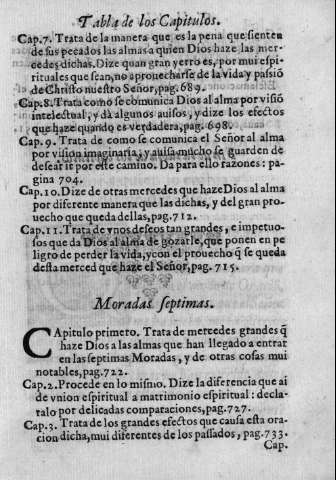 Tabla de los Capitulos.
Cap.7. Trata de la manera que es la pena que sienten
de sus pecados las almas a quien Dios haze las mer-
cedes dichas. Dize quan gran yerro es, por mui espi-
rituales que sean, no aprouecharse de la vida y passiõ
de Christo nuestro Señor, pag.689.
Cap.8. Trata como se comunica Dios al alma por visiõ
intelectual, y dà algunos auisos, y dize los efectos
que haze quando es verdadera, pag. 698.
Cap. 9. Trata de como se comunica el Señor al alma
por vision imaginaria, y auisa mucho se guarden de
desear ir por este camino. Da para ello razones: pa-
gina 704.
Cap.10. Dize de otras mercedes que haze Dios al alma
por diferente manera que las dichas, y del gran pro-
uecho que queda dellas, pag.712.
Cap.11. Trata de vnos deseos tan grandes, e impetuo-
sos que da Dios al alma de gozarle, que ponen en pe
ligro de perder la vida, y con el prouecho q̃ se queda
desta merced que haze el Señor, pag. 715.
Moradas septimas.
CApitulo primero. Trata de mercedes grandes q̃
haze Dios a las almas que han llegado a entrar
en las septimas Moradas, y de otras cosas mui
notables, pag.722.
Cap.2. Procede en lo mismo. Dize la diferencia que ai
de vnion espiritual a matrimonio espiritual: decla-
ralo por delicadas comparaciones, pag.727.
Cap.3. Trata de los grandes efectos que causa esta ora-
cion dicha, mui diferentes de los passados, pag.733.
Cap.